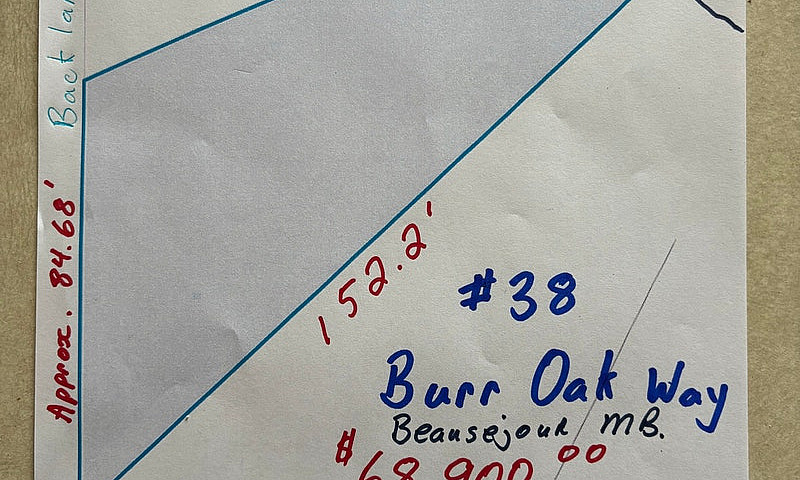 Back lan
Approx. 84.68'
152.2'
#38
Burr Oak Way
Beausejour MB.
$68,900.00